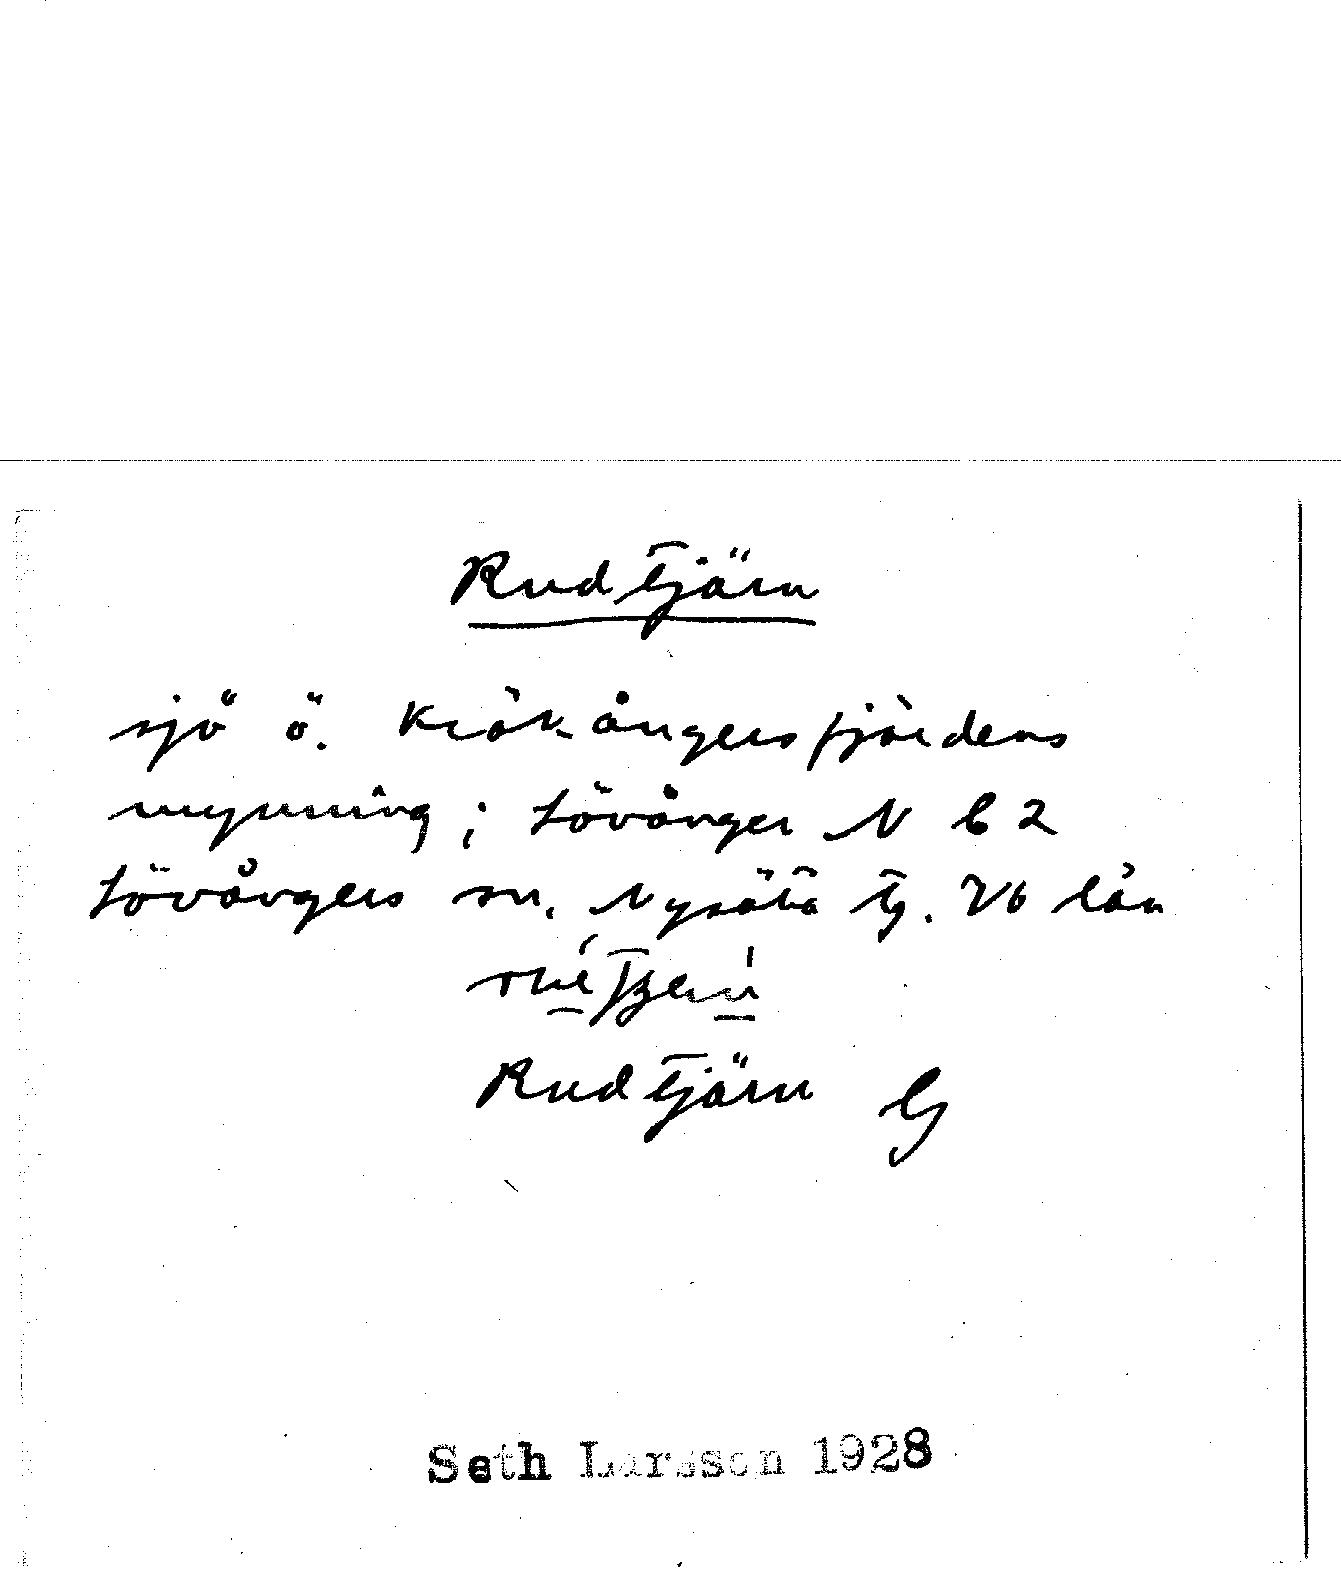 Rudtjärn
sjö ö. Kräkångersfjärdens
mynning; Lövånger N C 2
Lövångers sn. Nysätra tg. Vb län
Rudtjärn G
Seth Larsson 1928